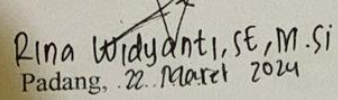 Rina Widyanti, SE, M.Si
Padang, 22 Maret 2024